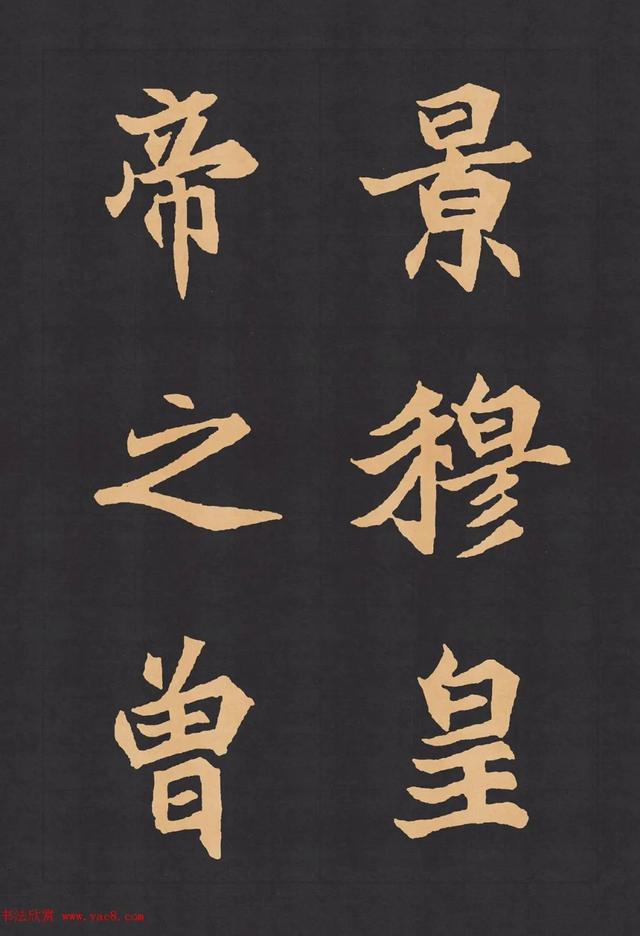 景穆皇
帝之曾
书法欣赏 www.yac8.com